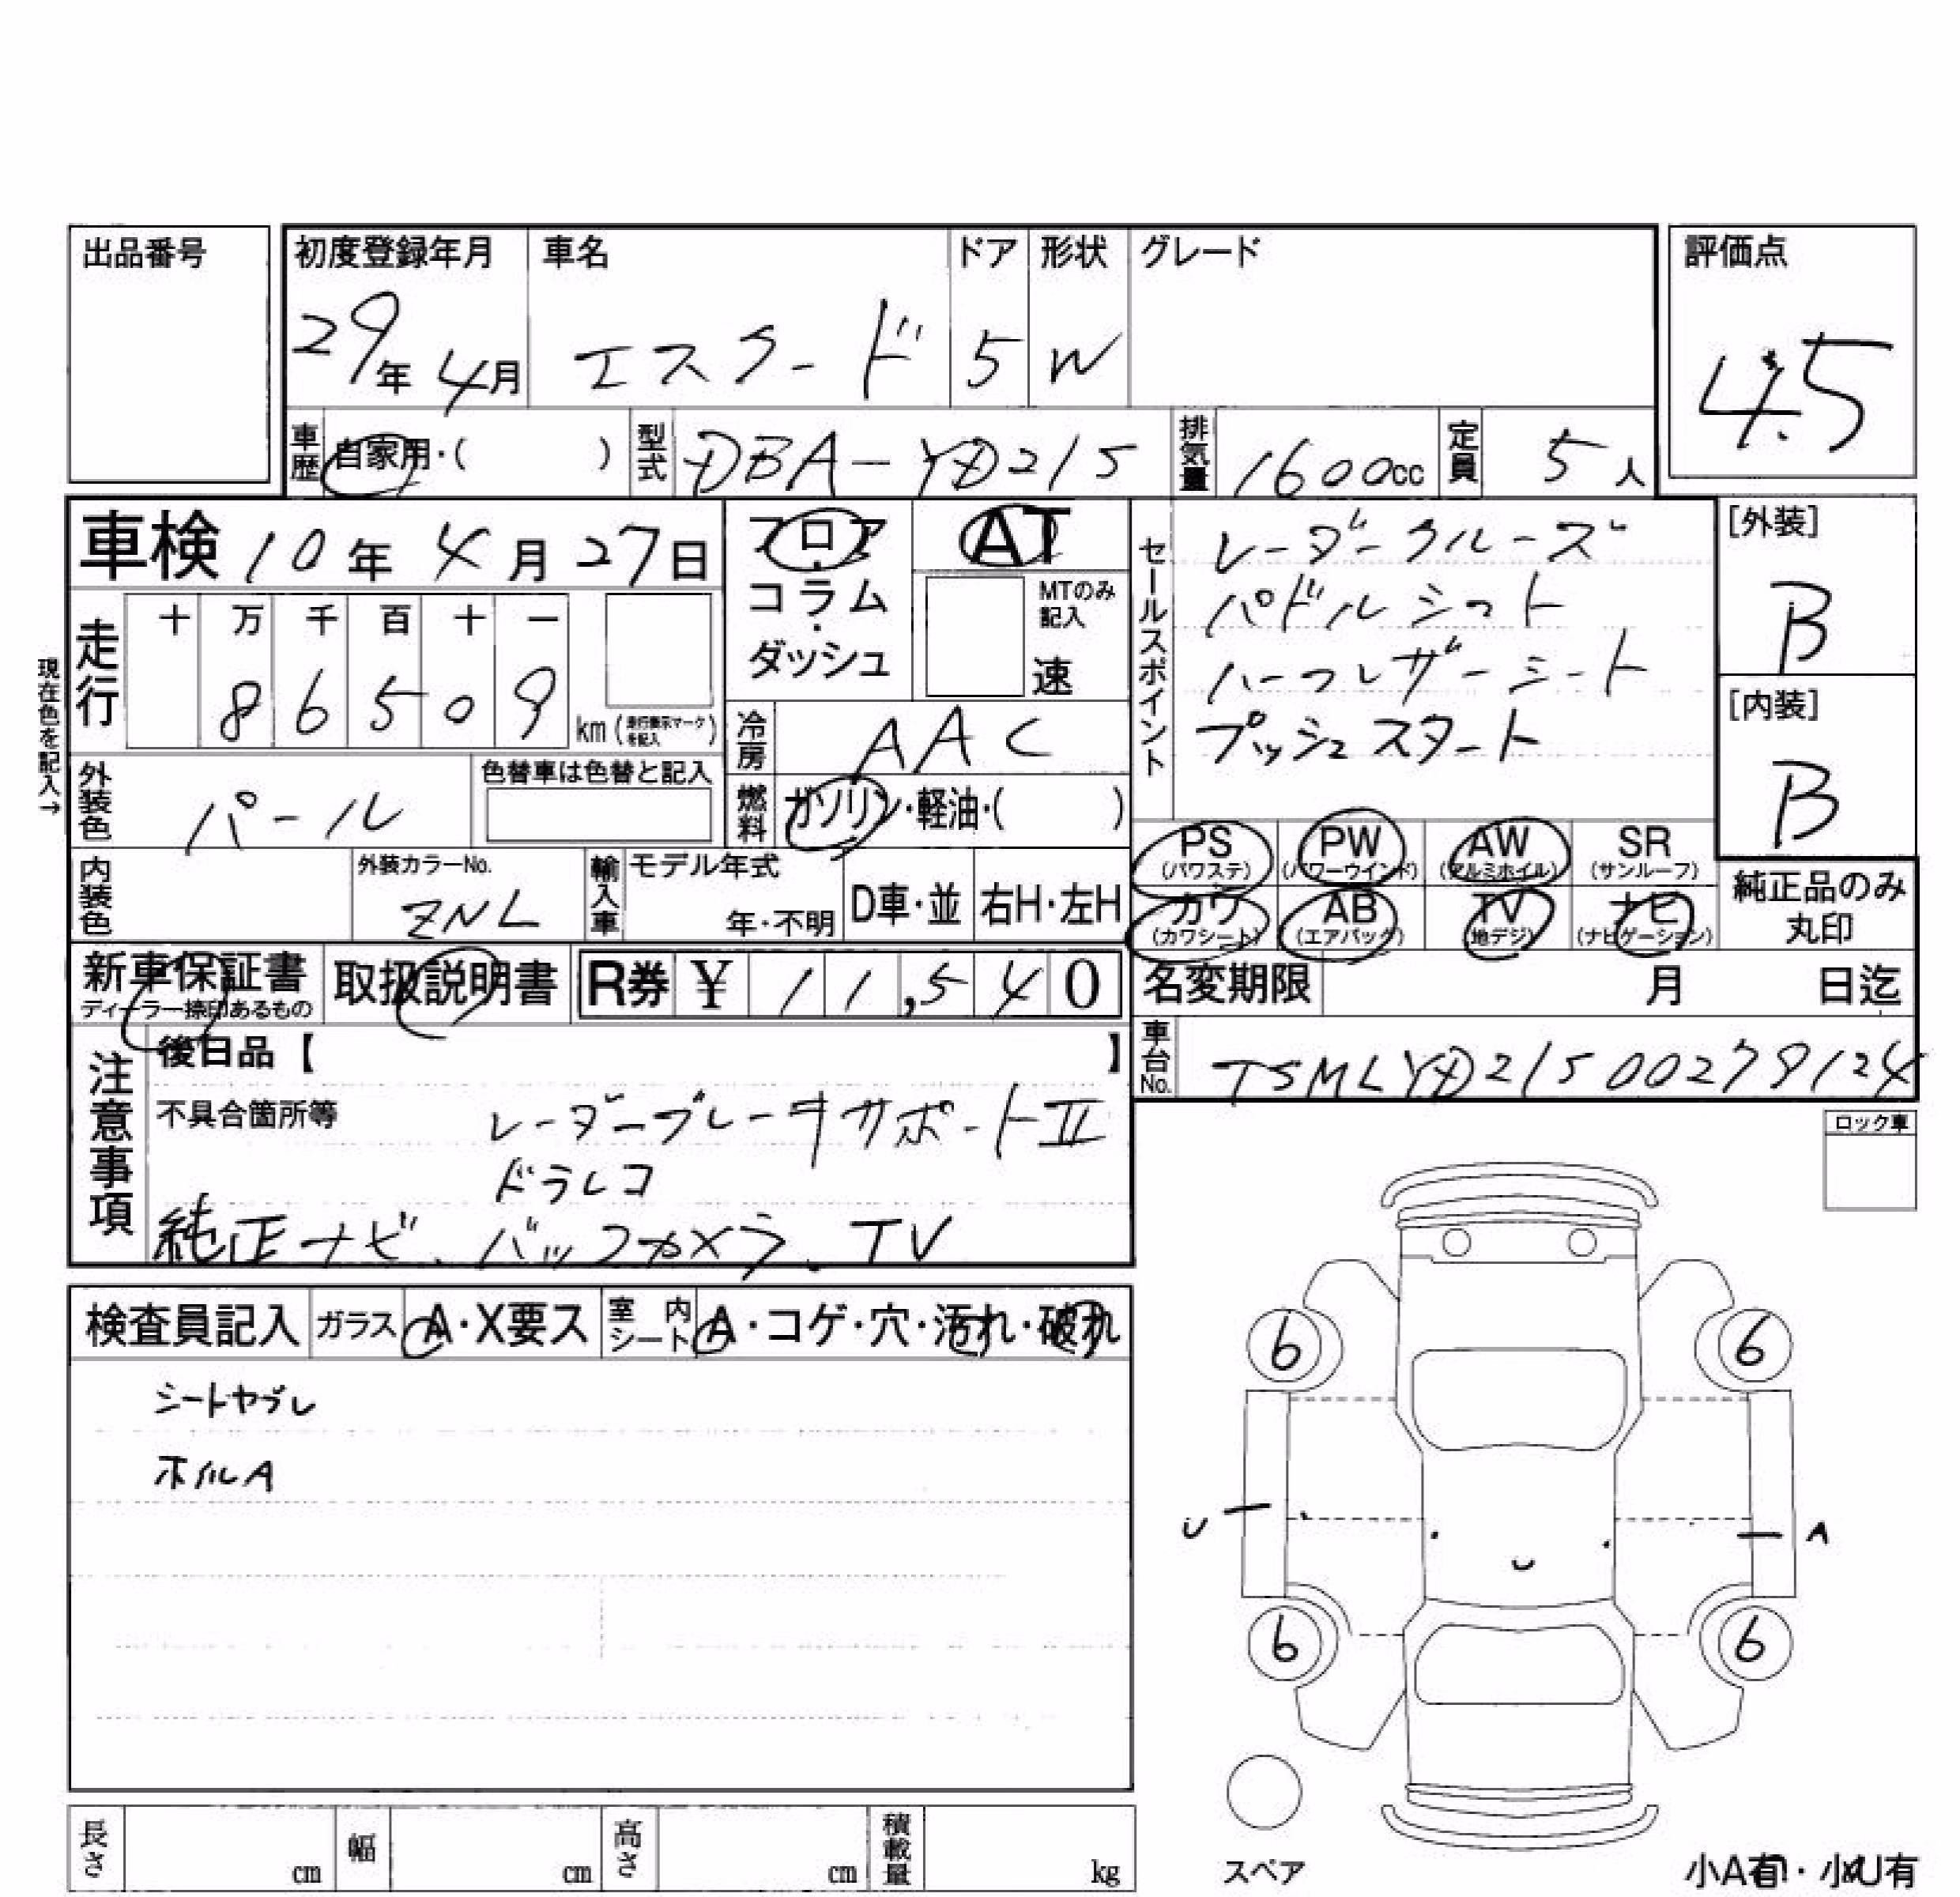 出品番号
初度登録年月 車名 ドア 形状 グレード 評価点
29年 4月 エスクード 5 W 4.5
車歴 自家用・( ) 型式 DBA-YD21S 排気量 1600cc 定員 5人
車検 10年 4月 27日
フロア・コラム・ダッシュ
AT
MTのみ記入
速
セールスポイント
レーダークルーズ
パドルシフト
ハーフレザーシート
プッシュスタート
[外装]
B
[内装]
B
現在色を記入→
走行 十 万 千 百 十 一
8 6 5 0 9 km (走行表示マークを記入)
冷房 AAC
外装色 パール 色替車は色替と記入
燃料 ガソリン・軽油・( )
PS (パワステ) PW (パワーウインド) AW (アルミホイル) SR (サンルーフ)
カワ (カワシート) AB (エアバック) TV (地デジ) ナビ (ナビゲーション)
純正品のみ丸印
内装色 外装カラーNo. ZNL 輸入車 モデル年式 年・不明 D車・並 右H・左H
新車保証書 ディーラー捺印あるもの 取扱説明書 R券 ¥ 11,540
名変期限 月 日迄
車台No. TSMLYD21S00279124
注意事項
後日品【 】
不具合箇所等 レーダーブレーキサポートII
ドラレコ
純正ナビ、バックカメラ、TV
ロック車
検査員記入 ガラス A・X要ス 室内シート A・コゲ・穴・汚れ・破れ
シートヤブレ
ホイルA
6 6
U U A
6 6
スペア
長さ cm 幅 cm 高さ cm 積載量 kg
小A有・小U有